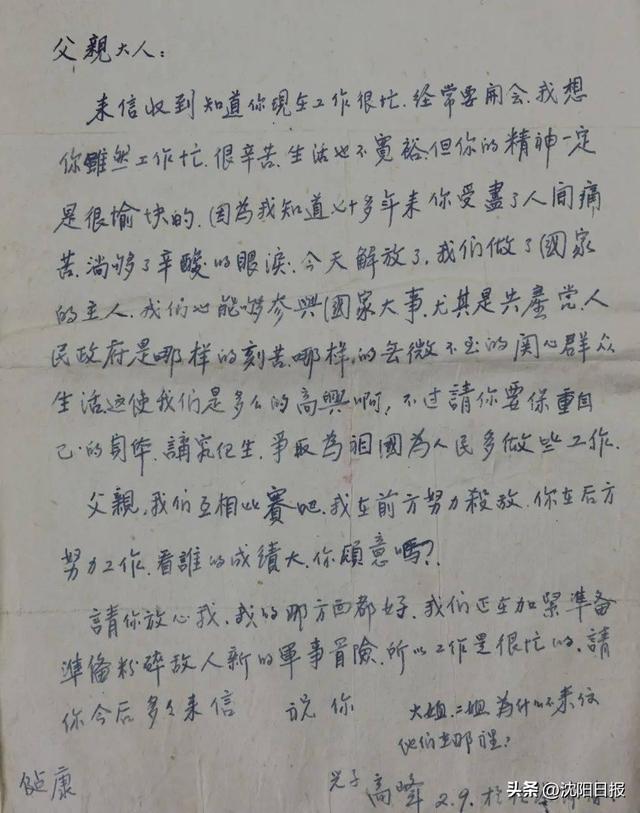 父親大人：
来信收到知道你現在工作很忙.经常要開会.我想
你雖然工作忙.很辛苦.生活也不寛裕.但你的精神一定
是很愉快的.因為我知道 几十多年来你受盡了人间痛
苦.淌够了辛酸的眼淚.今天解放了.我们做了國家
的主人.我们也能够参與國家大事.尤其是共產党.人
民政府是那样的刻苦.那样的无微不至的関心群众
生活这使我们是多么的高興啊，不过請你要保重自
己的身体.講究衛生.爭取為祖國為人民多做些工作.
父親，我们互相比賽吧.我在前方努力殺敌.你在后方
努力工作.看誰的成績大.你願意嗎？
請你放心我.我的那方面都好.我们正在加緊準备
準备粉碎敌人新的軍事冒險.所以工作是很忙的.請
你今后多多来信 祝你
大姐.二姐為什么不来信
他们在那裡？
健康
兒子
高峰 2.9.于
头条 @沈阳日报